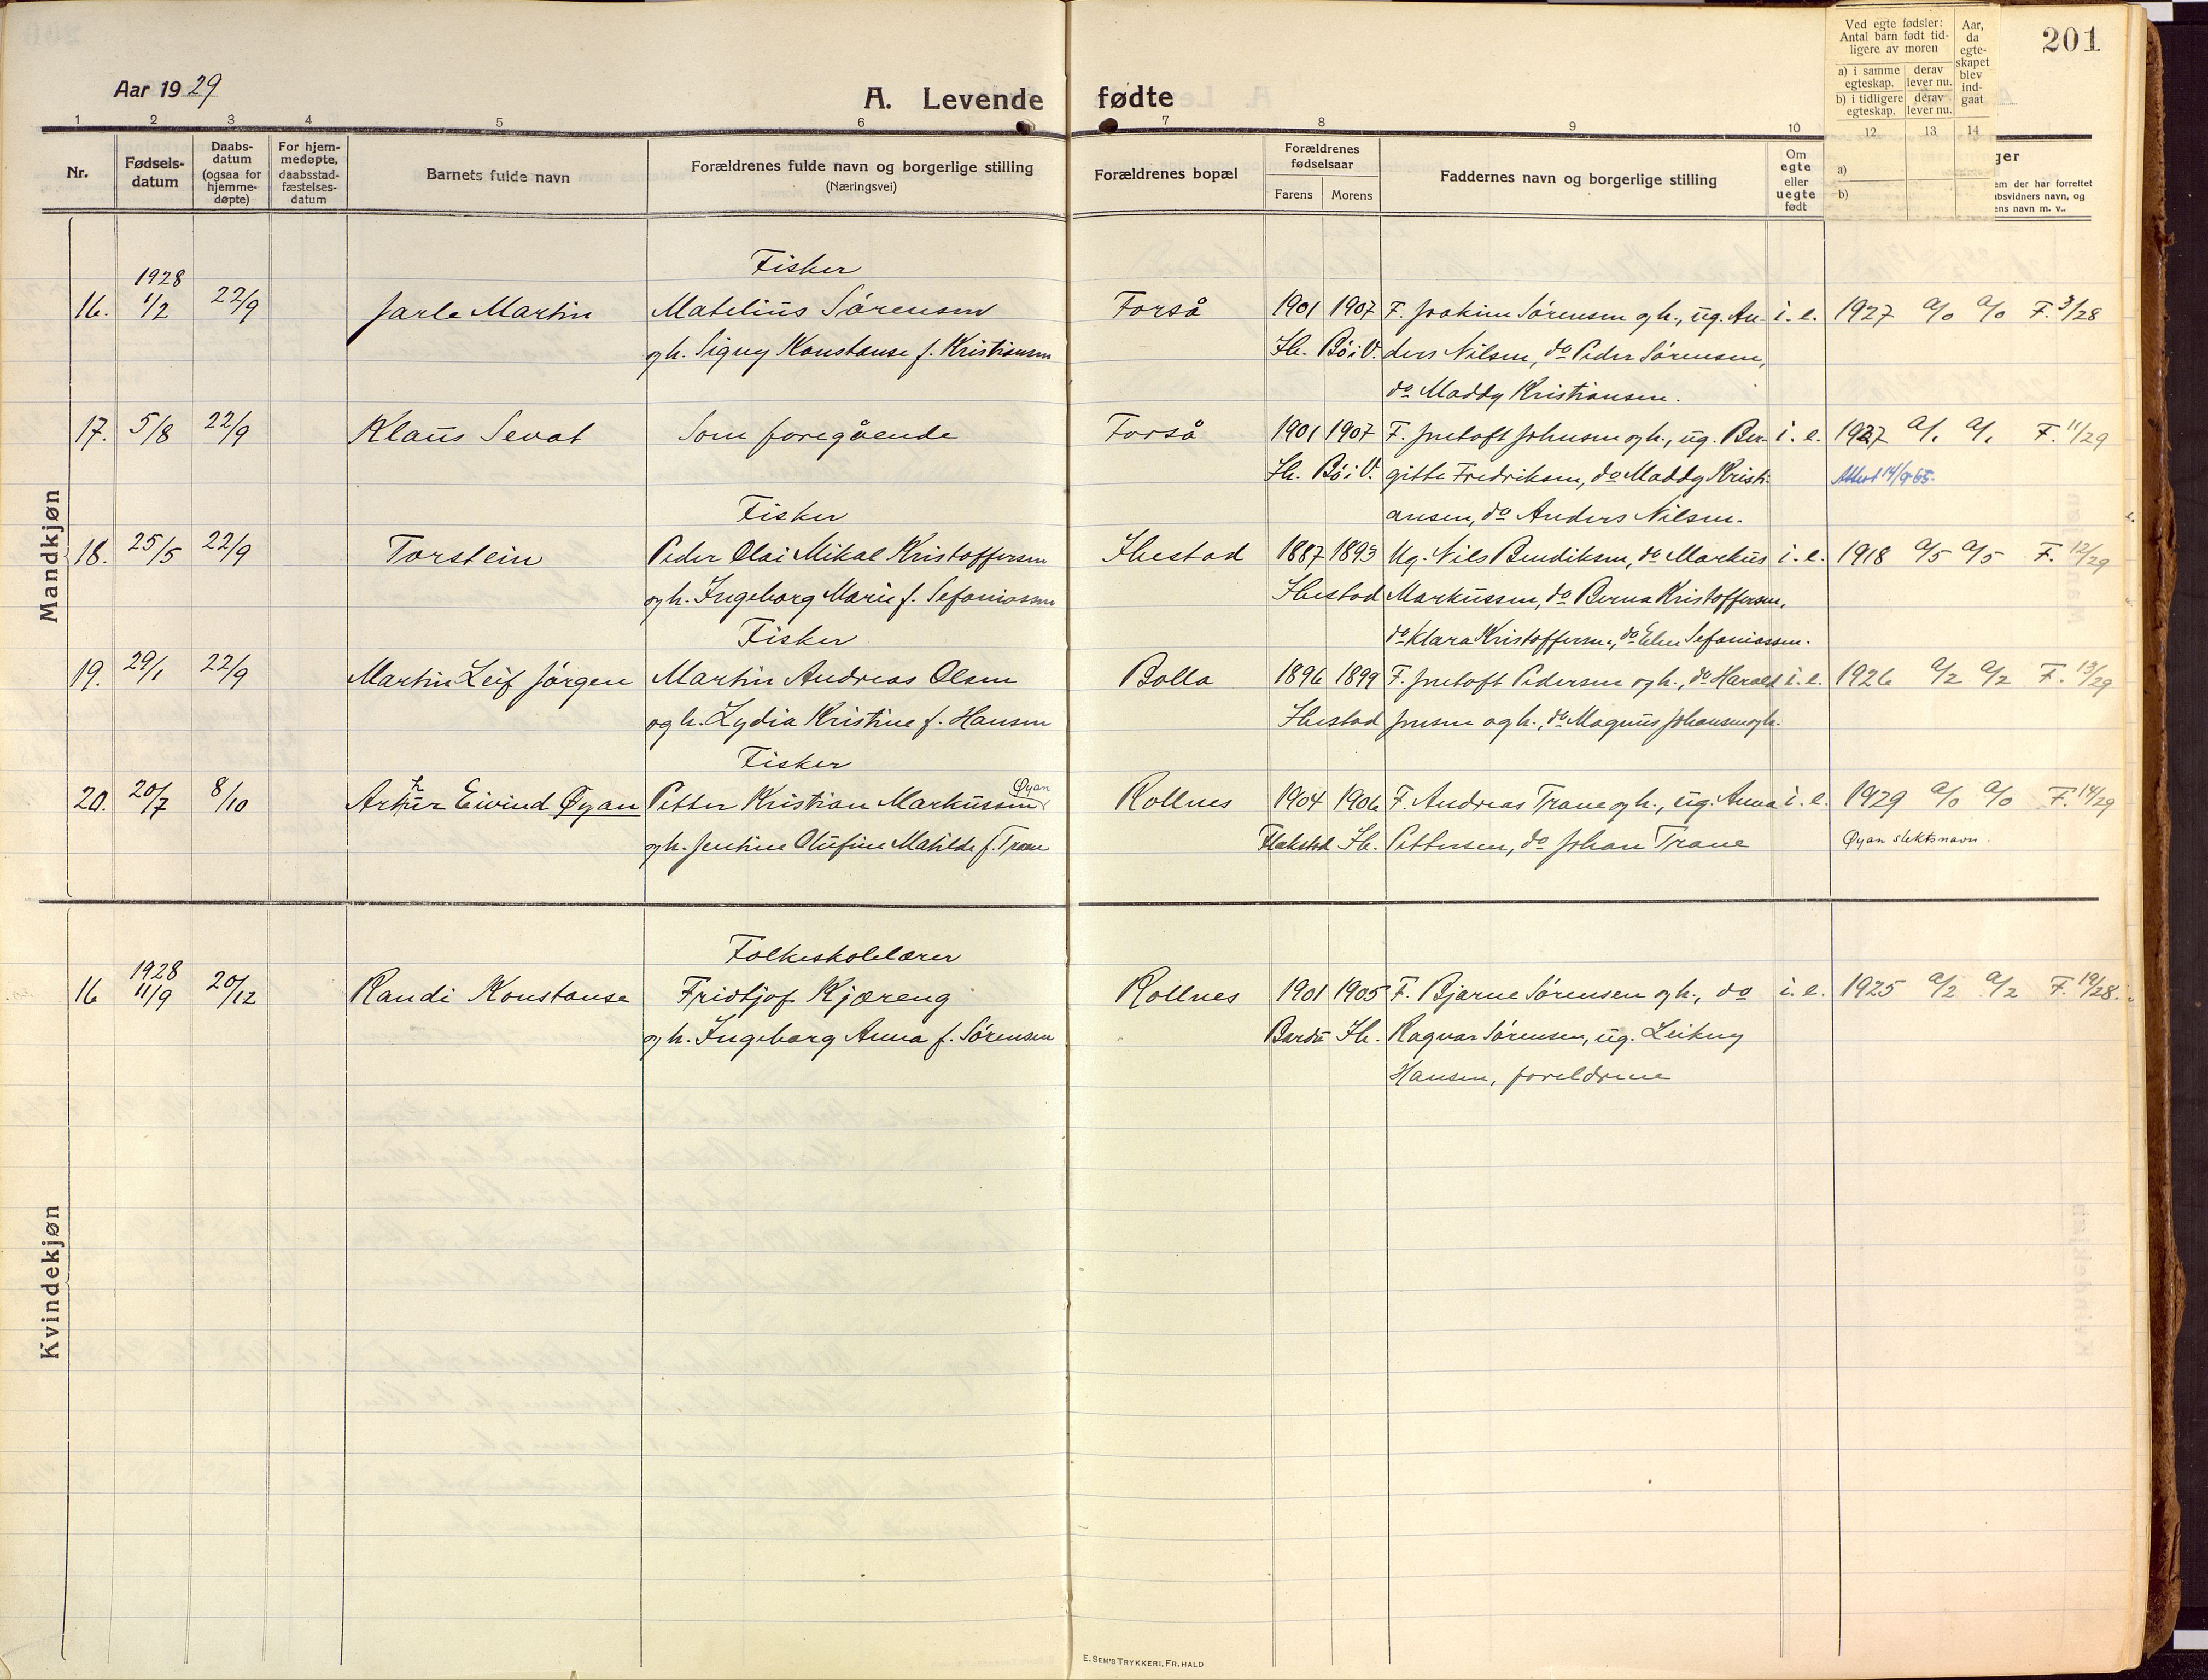 Aar 1929
A. Levende fødte
201
Ved egte fødsler: Antal barn født tidligere av moren
a) i samme egteskap. derav lever nu.
b) i tidligere egteskap. derav lever nu.
Aar, da egteskapet blev indgaat
1 2 3 4 5 6 7 8 9 10 12 13 14
Nr.
Fødselsdatum
Daabsdatum (ogsaa for hjemmedøpte)
For hjemmedøpte, daabsstadfæstelsesdatum
Barnets fulde navn
Forældrenes fulde navn og borgerlige stilling
(Næringsvei)
Forældrenes bopæl
Forældrenes fødselsaar
Farens Morens
Faddernes navn og borgerlige stilling
Om egte eller uegte født
a)
b)
ger
em der har forrettet
absvidners navn, og
ens navn m. v..
Mandkjøn
Fisker
1928
16. 1/2 22/9 Jarle Martin Matelius Sørensen Forså 1901 1907 F. Joakim Sørensen og h., ug. An- i. e. 1927 a/0 a/0 F. 3/28
og h. Signy Konstanse f. Kristiansen Ib. Bø i V. ders Nilsen, do Peder Sørensen,
do Maddy Kristiansen.
17. 5/8 22/9 Klaus Sevat Som foregående Forså 1901 1907 F. Jentoft Johnsen og h., ug. Ber- i. e. 1927 a/1 a/1 F. 11/29
Ib. Bø i V. gitte Fredriksen, do Maddy Kristi- Attest 14/9-65.
Fisker ansen, do Anders Nilsen.
18. 25/5 22/9 Torstein Peder Olai Mikal Kristoffersen Ibestad 1887 1893 Ug. Nils Bendiksen, do Markus i. e. 1918 a/5 a/5 F. 12/29
og h. Ingeborg Marie f. Sefaniassen Ibestad Markussen, do Berna Kristoffersen,
Fisker do Klara Kristoffersen, do Elen Sefaniassen.
19. 29/1 22/9 Martin Leif Jørgen Martin Andreas Olsen Bolla 1896 1899 F. Jentoft Pedersen og h., do Harald i. e. 1926 a/2 a/2 F. 13/29
og h. Lydia Kristine f. Hansen Ibestad Jensen og h., do Magnus Johansen og h.
Fisker
20. 20/7 8/10 Arthur Eivind Øyan Petter Kristian Markussen Øyan Rollnes 1904 1906 F. Andreas Trane og h., ug. Anna i. e. 1929 a/0 a/0 F. 14/29
og h. Jentine Olufine Matilde f. Trane Flakstad Ib. Pettersen, do Johan Trane Øyan slektsnavn.
Kvindekjøn
Folkeskolelærer
1928
16 11/9 20/12 Randi Konstanse Fridtjof Kjæreng Rollnes 1901 1905 F. Bjarne Sørensen og h., do i. e. 1925 a/2 a/2 F. 19/28.
og h. Ingeborg Anna f. Sørensen Bardu Ib. Ragnar Sørensen, ug. Leikny
Hansen, foreldrene
E. SEM'S TRYKKERI, FR. HALD